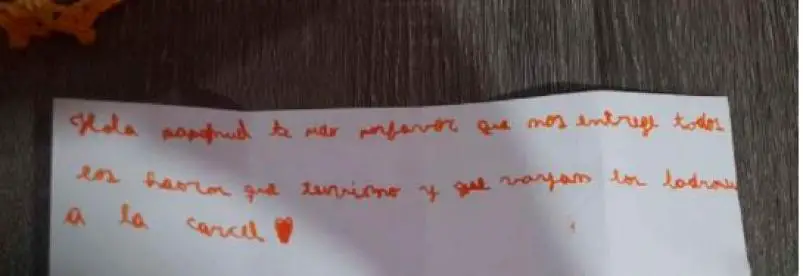 Hola papapnud te pido porfavor que nos entrege todos
los haoron que teniamo y que vayan los ladrones
a la carcel